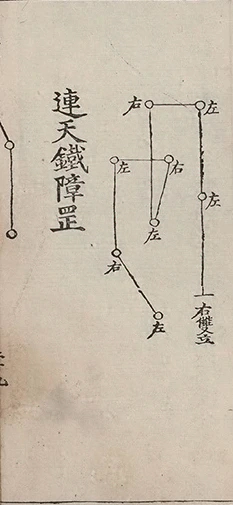 連天鐵障罡
右
左
左
右
左
左
右
左
右雙立